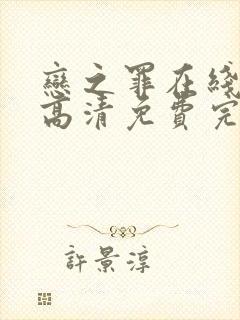 戀之罪在綫
高清免費完
許景淳